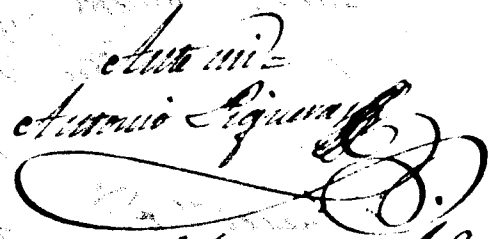 Ante mi=
Antonio Piqueras